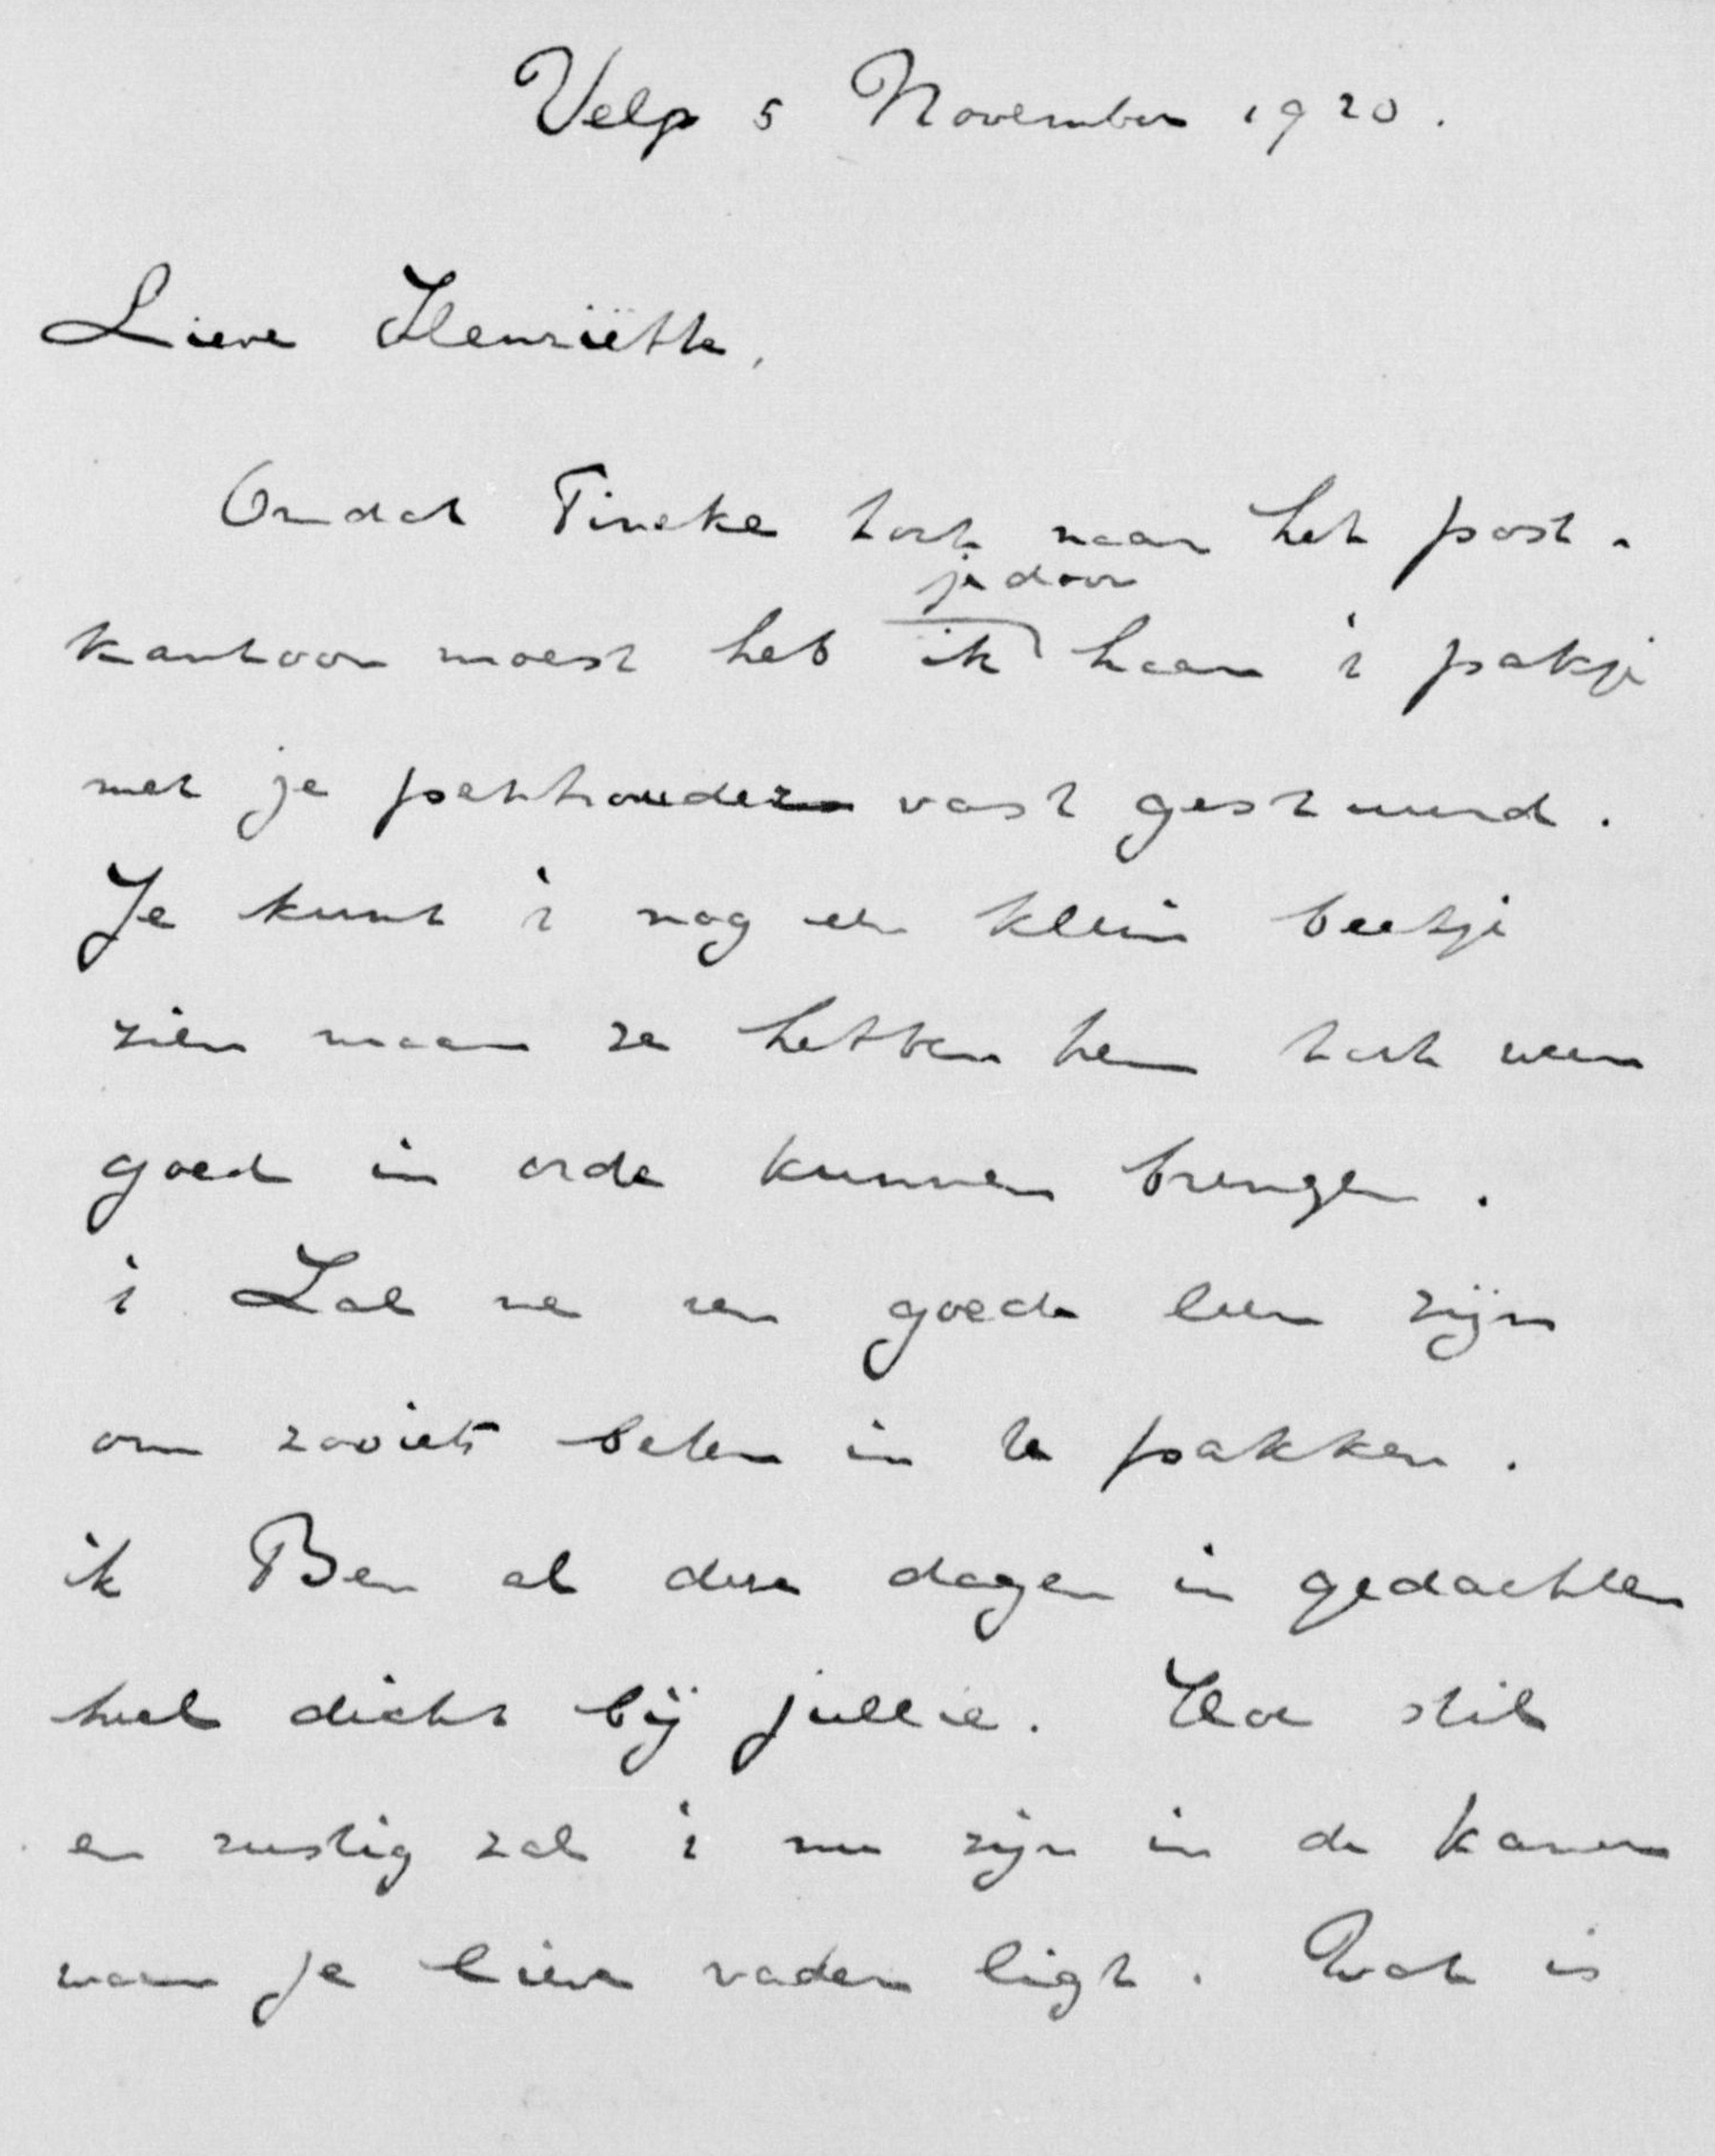 Velp 5 November 1920.
Lieve Henriëtte,
Omdat Tineke toch naar het post-
je door
kantoor moest heb ik haar 't pakje
met je penhouder vast gestuurd.
Je kunt 't nog een klein beetje
zien maar ze hebben hem toch weer
goed in orde kunnen brengen.
't Zal me een goede leer zijn
om zooiets beter in te pakken.
ik Ben al deze dagen in gedachten
heel dicht bij jullie. Hoe stil
en rustig zal 't nu zijn in de kamer
waar je lieve vader ligt. Wat is